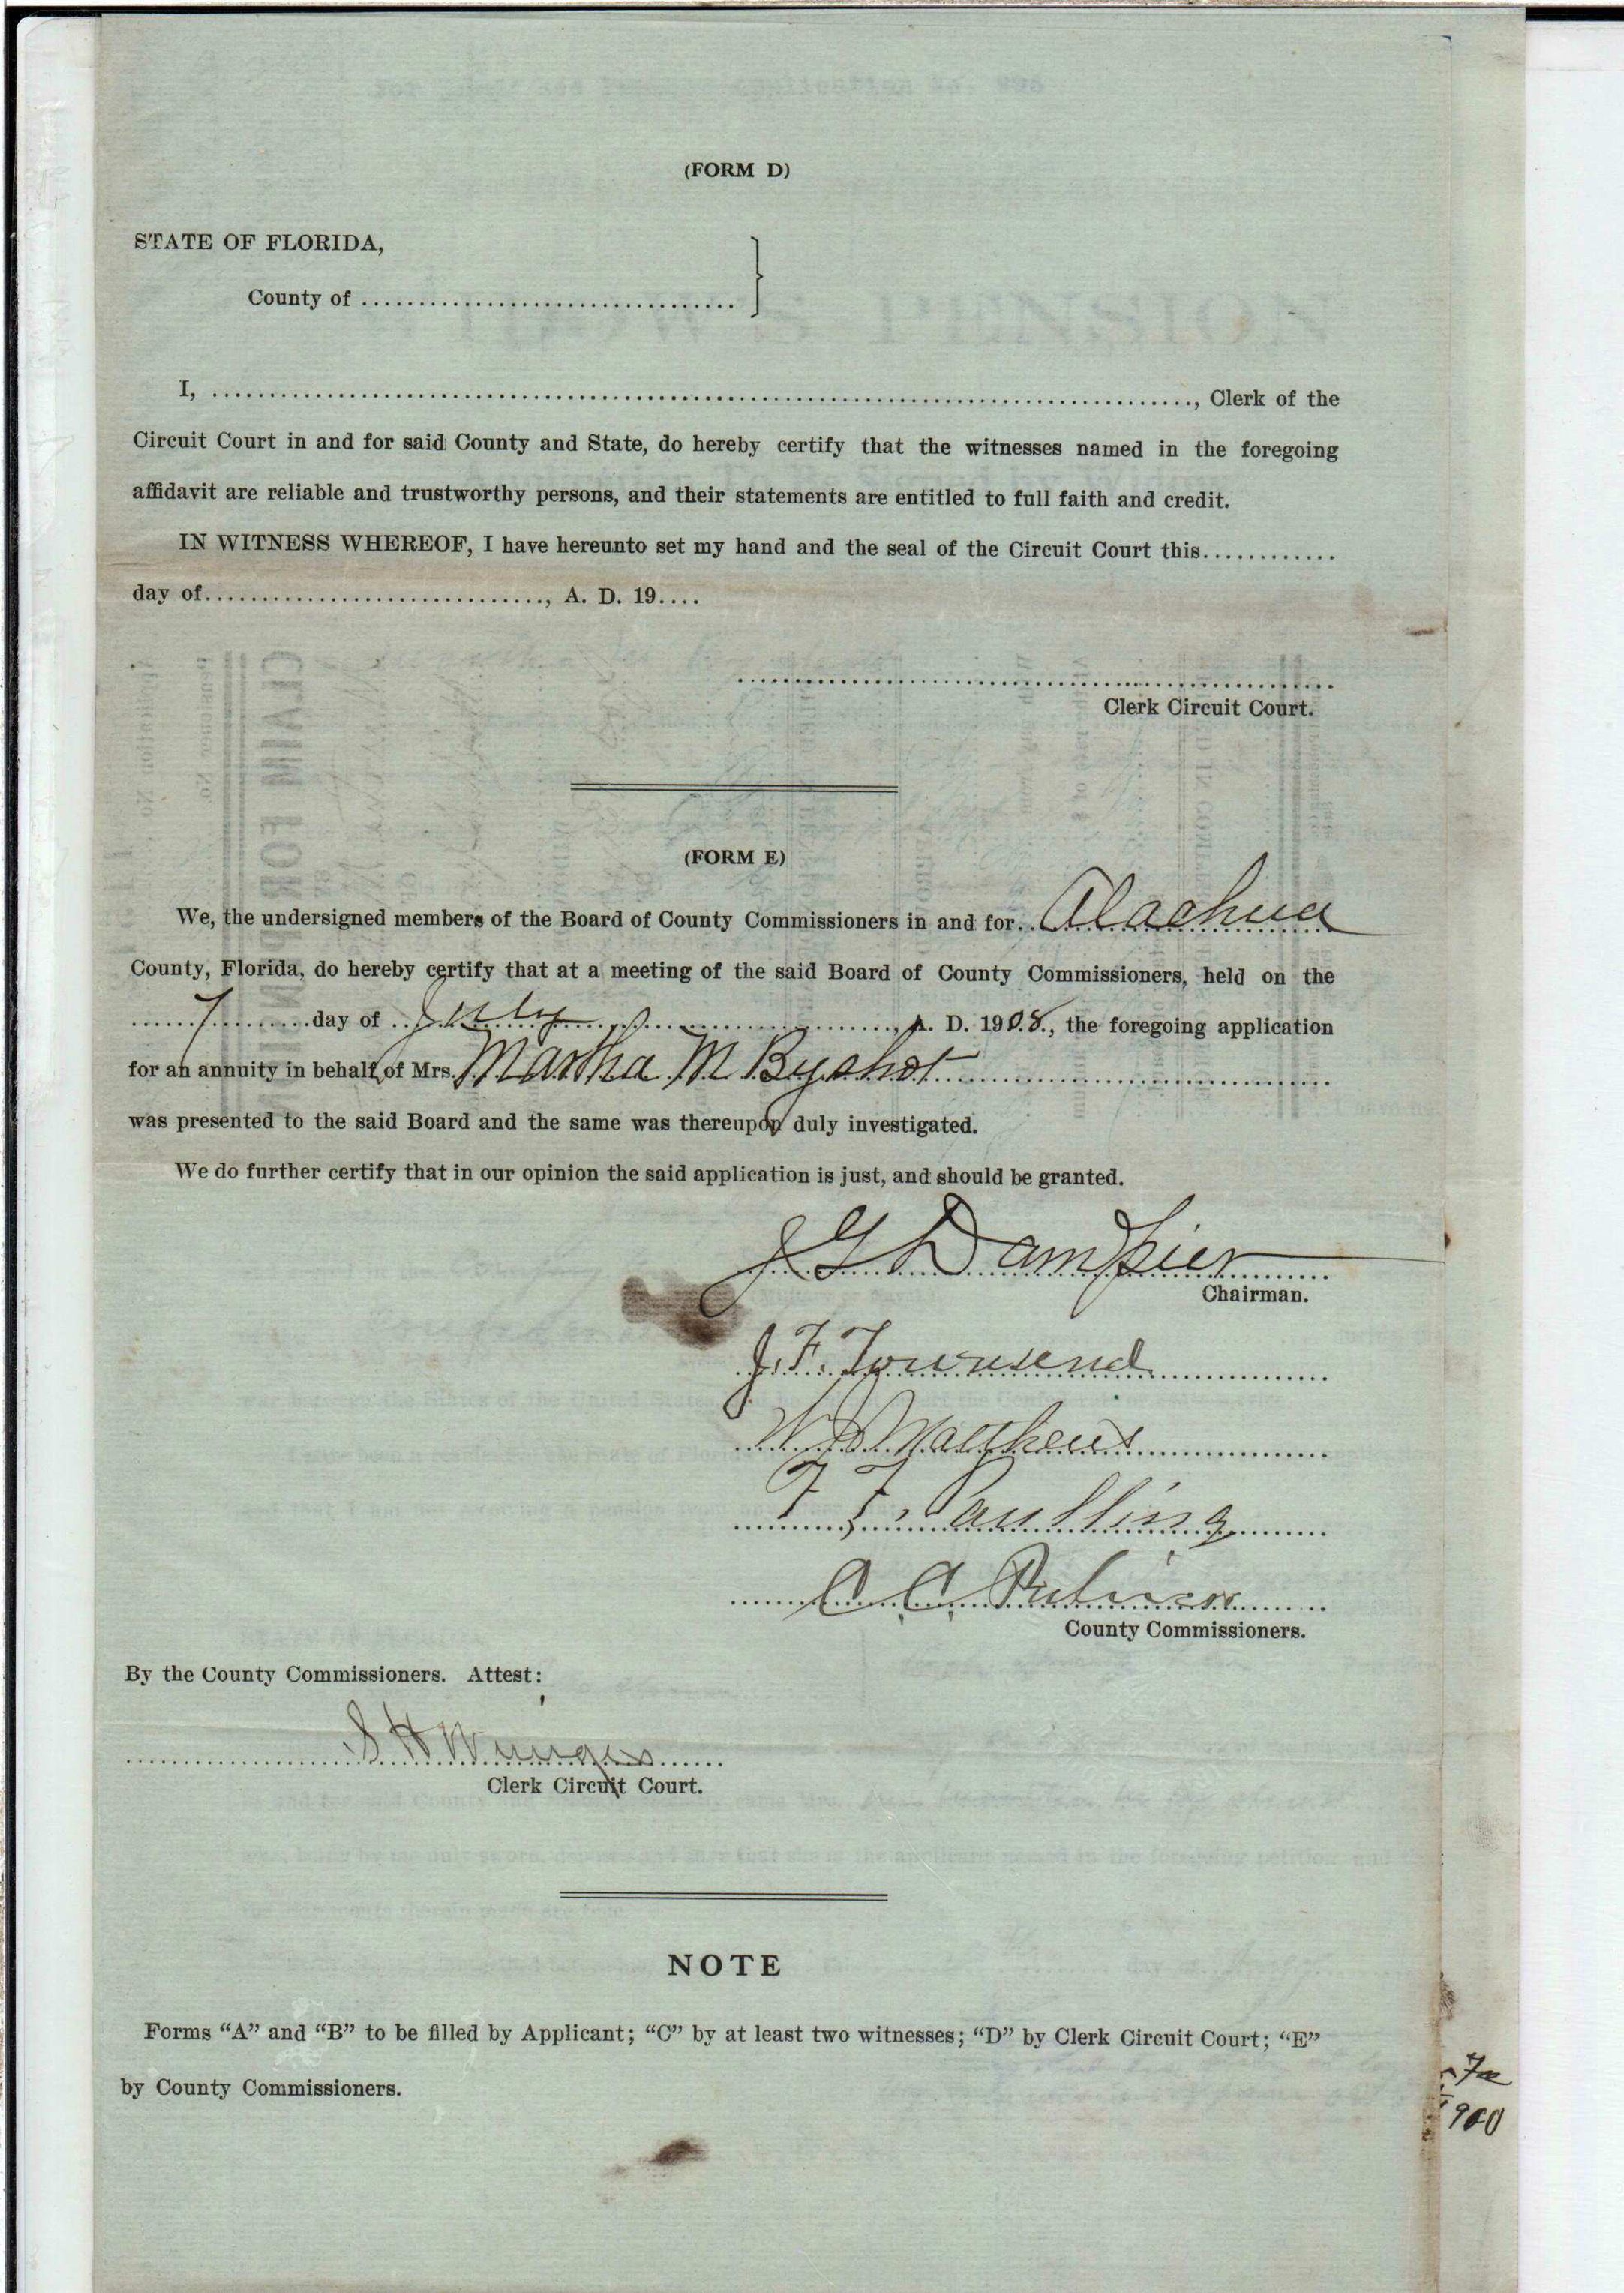 (FORM D)
STATE OF FLORIDA,
County of ................................
I, ...................................................................................., Clerk of the
Circuit Court in and for said County and State, do hereby certify that the witnesses named in the foregoing
affidavit are reliable and trustworthy persons, and their statements are entitled to full faith and credit.
IN WITNESS WHEREOF, I have hereunto set my hand and the seal of the Circuit Court this............
day of............................., A. D. 19....
Clerk Circuit Court.
(FORM E)
We, the undersigned members of the Board of County Commissioners in and for Alachua
County, Florida, do hereby certify that at a meeting of the said Board of County Commissioners, held on the
7 day of July, A. D. 1908., the foregoing application
for an annuity in behalf of Mrs. Martha M Byshot
was presented to the said Board and the same was thereupon duly investigated.
We do further certify that in our opinion the said application is just, and should be granted.
J G Dampier
Chairman.
J. F. Townsend
W D Matthews
F. F. Paulling
C. C.
County Commissioners.
By the County Commissioners. Attest:
S H Wienges
Clerk Circuit Court.
NOTE
Forms “A” and “B” to be filled by Applicant; “C” by at least two witnesses; “D” by Clerk Circuit Court; “E”
by County Commissioners.
900